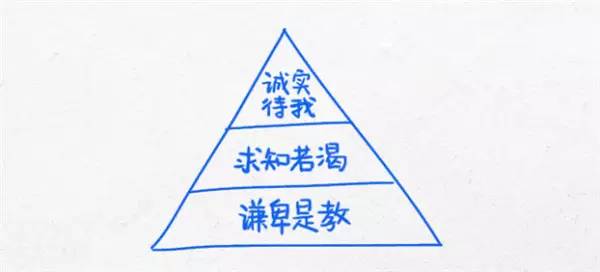 诚实
待我
求知若渴
谦卑是教